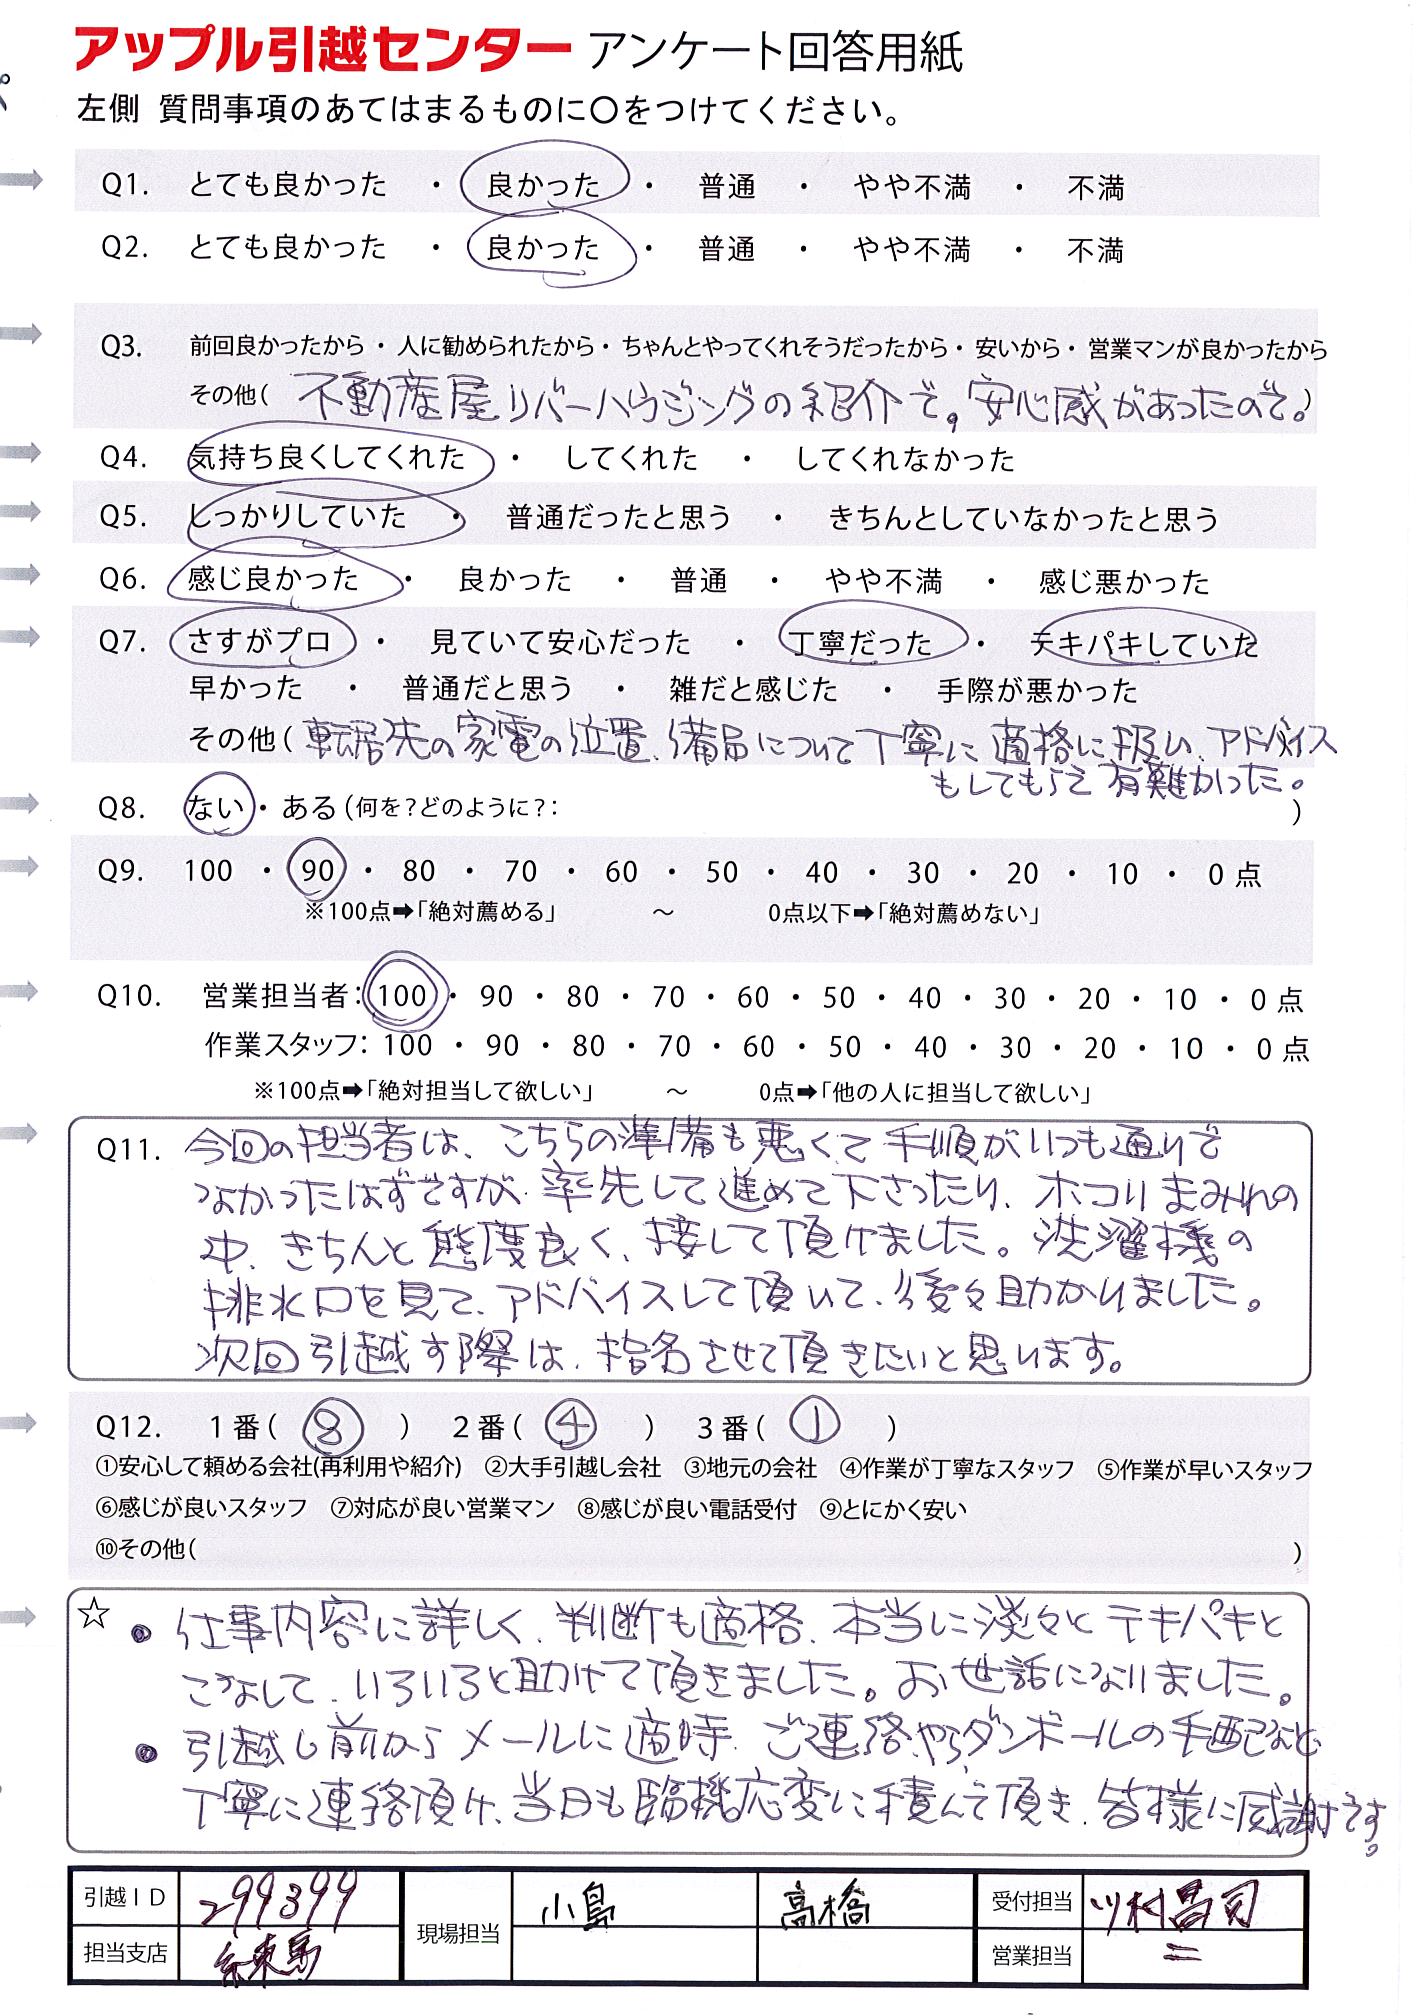 アップル引越センター アンケート回答用紙
左側 質問事項のあてはまるものに〇をつけてください。
Q1. とても良かった ・ 良かった ・ 普通 ・ やや不満 ・ 不満
Q2. とても良かった ・ 良かった ・ 普通 ・ やや不満 ・ 不満
Q3. 前回良かったから・人に勧められたから・ちゃんとやってくれそうだったから・安いから・営業マンが良かったから
その他( 不動産屋リバーハウジングの紹介で。安心感があったので。)
Q4. 気持ち良くしてくれた ・ してくれた ・ してくれなかった
Q5. しっかりしていた ・ 普通だったと思う ・ きちんとしていなかったと思う
Q6. 感じ良かった ・ 良かった ・ 普通 ・ やや不満 ・ 感じ悪かった
Q7. さすがプロ ・ 見ていて安心だった ・ 丁寧だった ・ テキパキしていた
早かった ・ 普通だと思う ・ 雑だと感じた ・ 手際が悪かった
その他( 転居先の家電の位置、備品について丁寧に適格に扱い、アドバイス
もしてもらえ有難かった。
Q8. ない・ある(何を?どのように?: )
Q9. 100 ・ 90 ・ 80 ・ 70 ・ 60 ・ 50 ・ 40 ・ 30 ・ 20 ・ 10 ・ 0 点
※100点➡「絶対薦める」 ～ 0点以下➡「絶対薦めない」
Q10. 営業担当者: 100 ・ 90 ・ 80 ・ 70 ・ 60 ・ 50 ・ 40 ・ 30 ・ 20 ・ 10 ・ 0 点
作業スタッフ: 100 ・ 90 ・ 80 ・ 70 ・ 60 ・ 50 ・ 40 ・ 30 ・ 20 ・ 10 ・ 0 点
※100点➡「絶対担当して欲しい」 ～ 0点➡「他の人に担当して欲しい」
Q11. 今回の担当者は、こちらの準備も悪くて手順がいつも通りで
なかったはずですが、率先して進めて下さったり、ホコリまみれの
中、きちんと態度良く、接して頂けました。洗濯機の
排水口を見て、アドバイスして頂いて、後々助かりました。
次回引越す際は、指名させて頂きたいと思います。
Q12. 1番( ⑧ ) 2番( ④ ) 3番( ① )
①安心して頼める会社(再利用や紹介) ②大手引越し会社 ③地元の会社 ④作業が丁寧なスタッフ ⑤作業が早いスタッフ
⑥感じが良いスタッフ ⑦対応が良い営業マン ⑧感じが良い電話受付 ⑨とにかく安い
⑩その他( )
☆ ● 仕事内容に詳しく、判断も適格、本当に淡々とテキパキと
こなして、いろいろと助けて頂きました。お世話になりました。
● 引越し前からメールに適時、ご連絡やらダンボールの手配など、
丁寧に連絡頂け、当日も臨機応変に積んで頂き、皆様に感謝です。
引越ID 299399 現場担当 小島 高橋 受付担当 川村昌司
担当支店 練馬 営業担当 〃